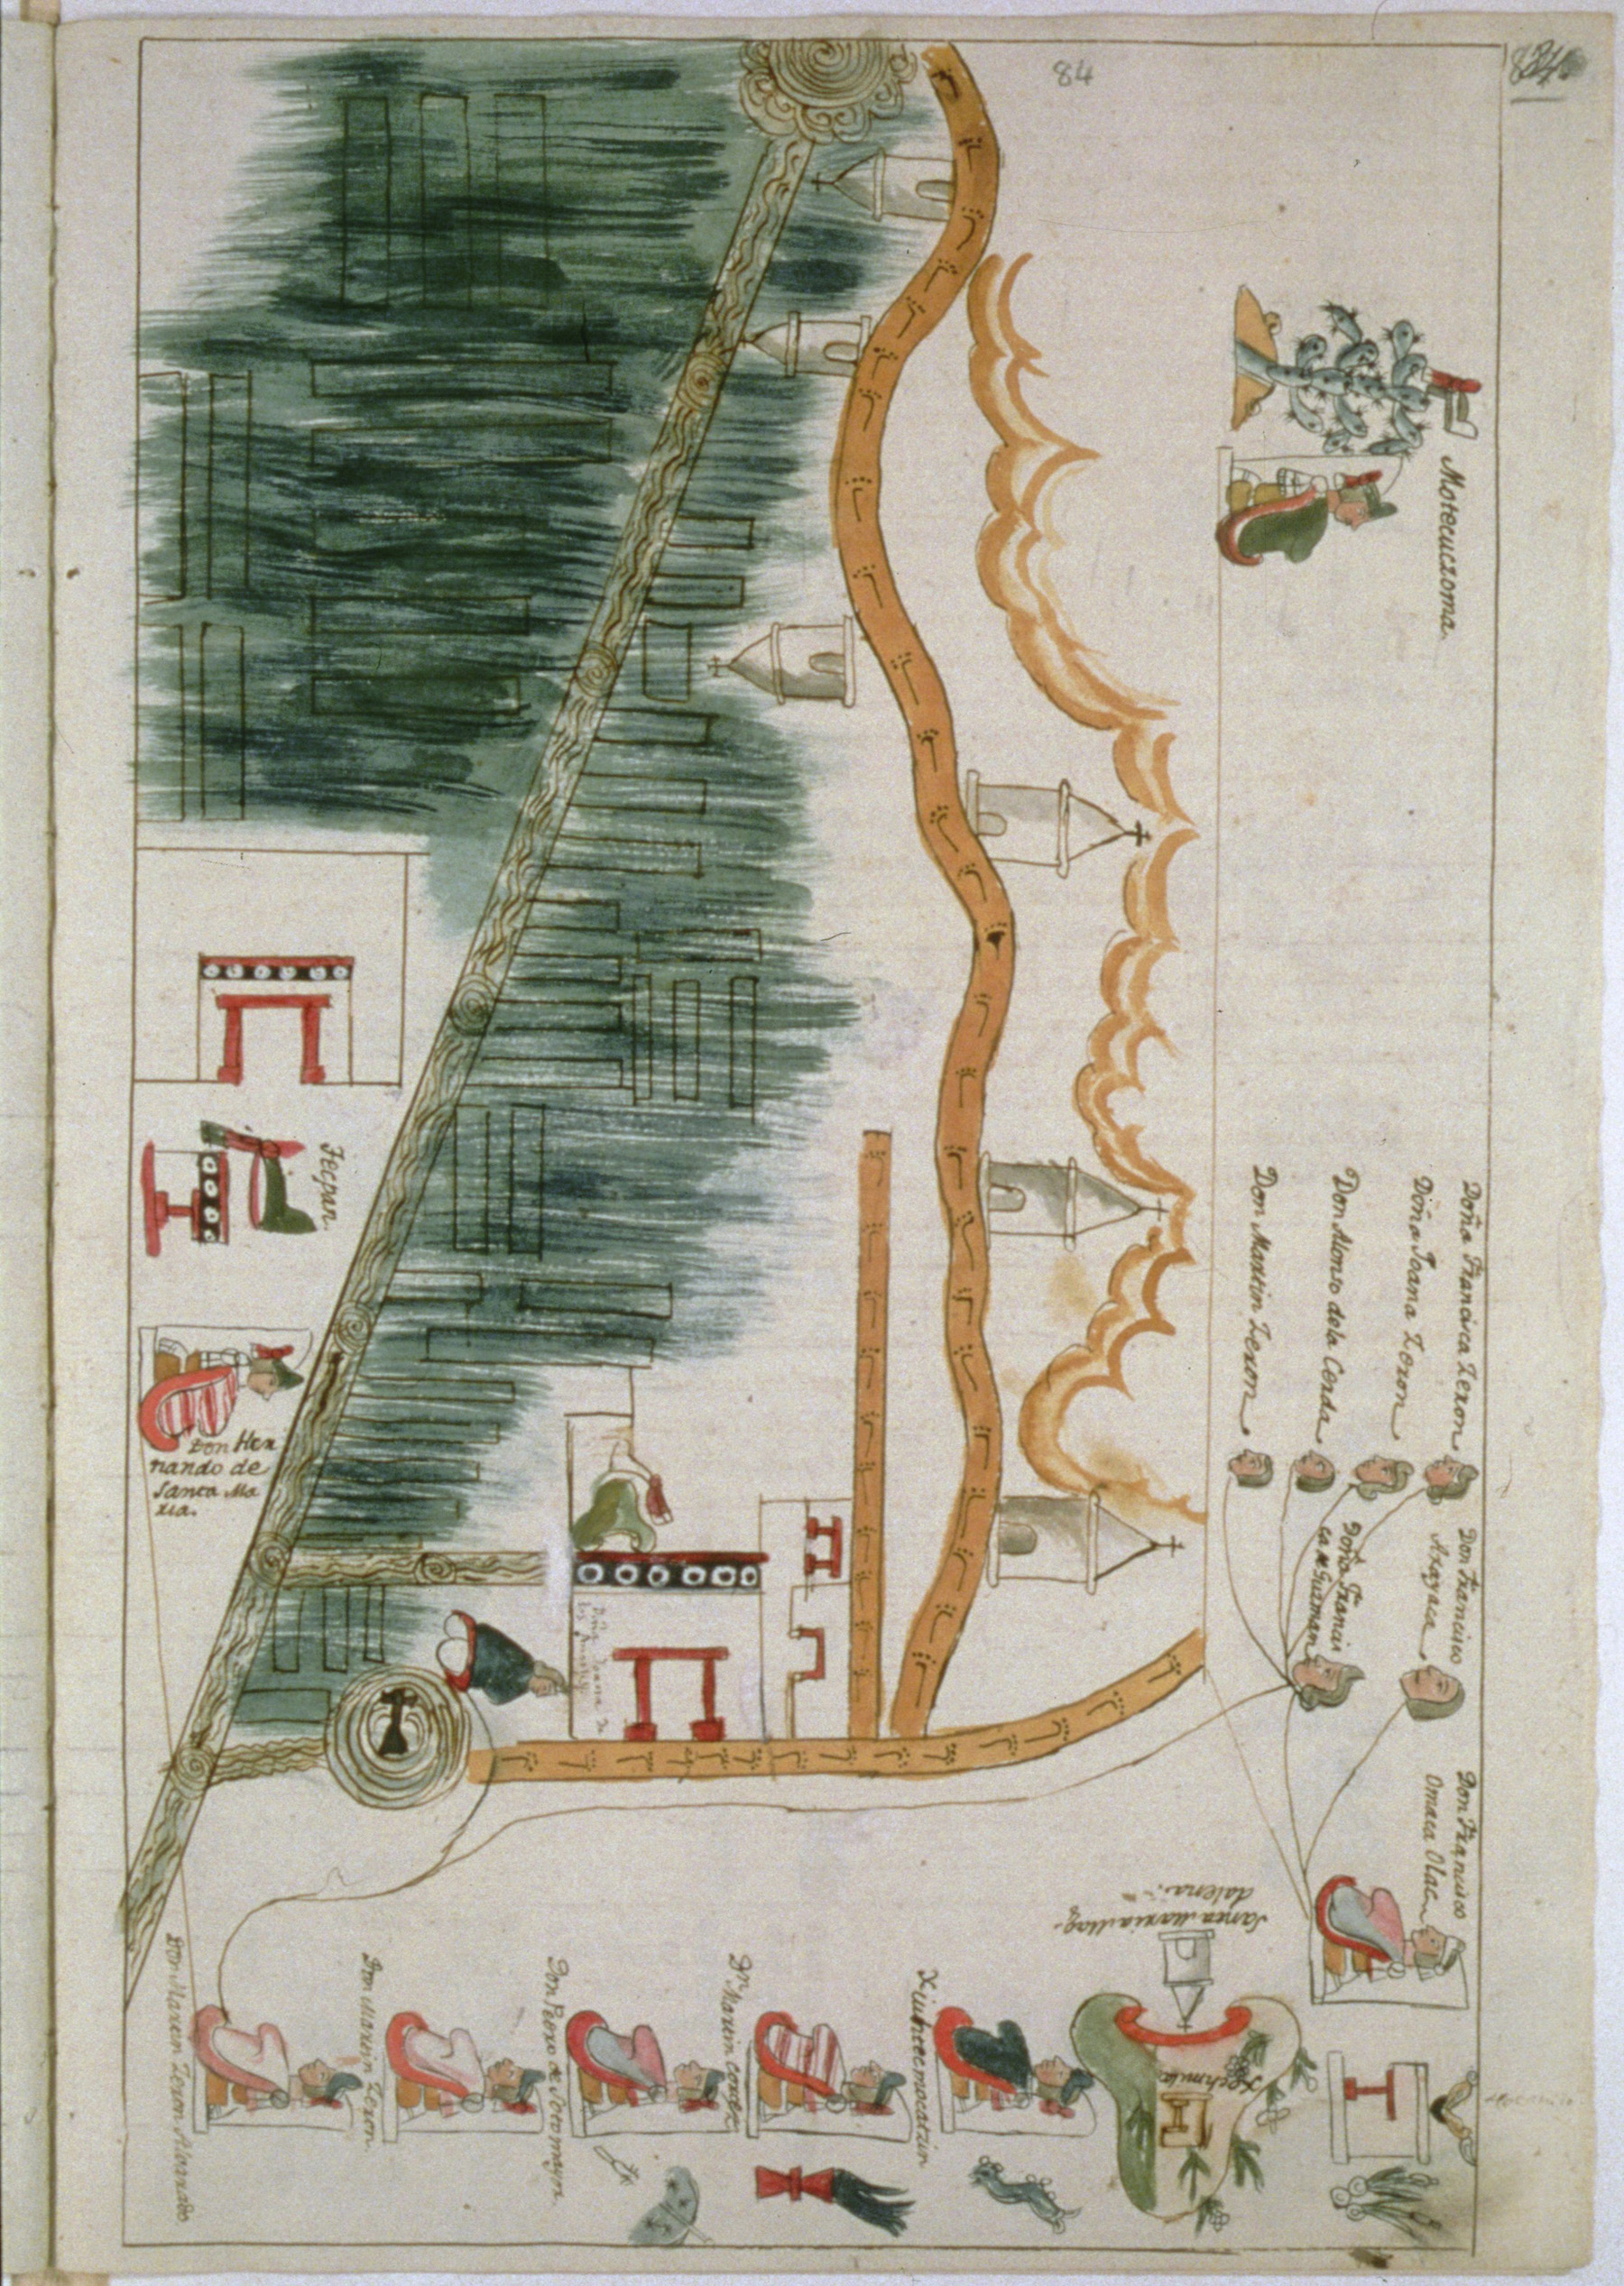 84
Motecuczoma.
Doña Francisca Zeron
Doña Joana Zeron
Don Alonso dela Cerda
Don Martin Zeron
Don Francisco
Axayaca
Doña Francis
ca de Guzman
Don Francisco
Omaca Olac
Tecpan.
Don Her
nando de
Santa Ma
ria.
Doña Joana de
Santa Maria Mag-
dalena.
Xochmilco
Xiuhtecmocatzin
Dn Martin Cortes
Don Pedro de Sotomayor
Don Martin Zeron
Don Martin Zeron Alvarado.